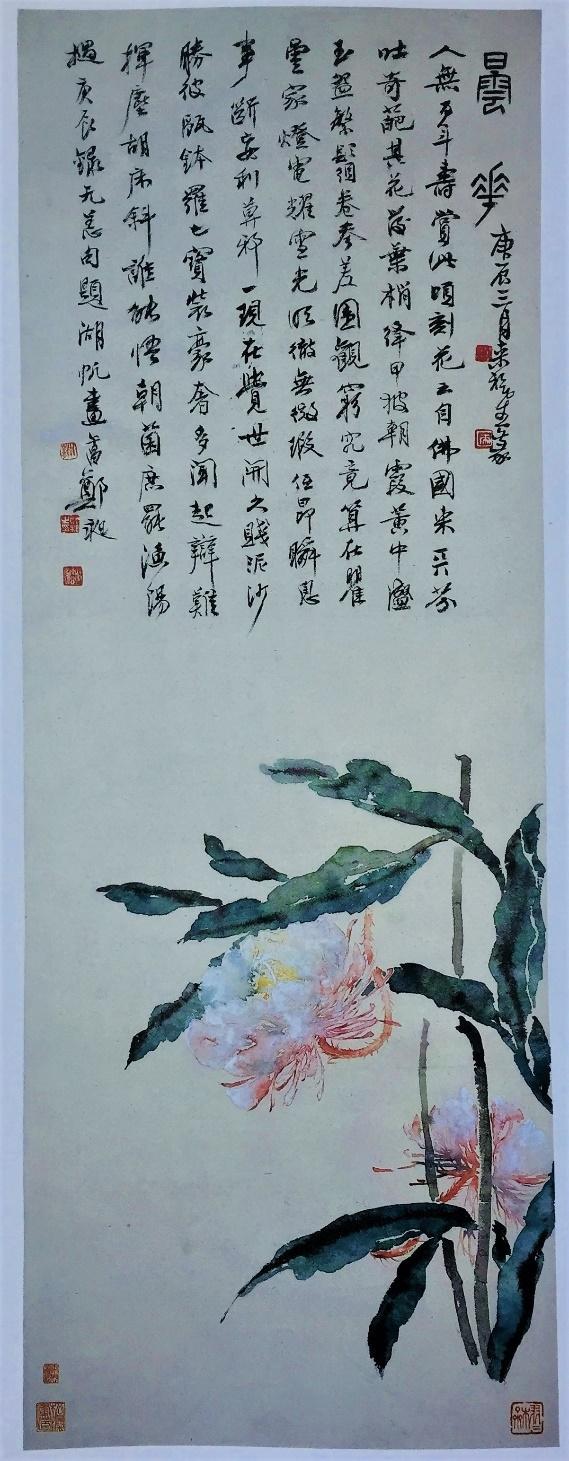 曇華
庚辰三月
人無壽賞此頃刻花云自佛國來異芬
吐奇葩其花茁葉梢絳甲披朝霞黃中盛
玉盌繁鬚卷參差圍觀窮究竟算在瞿
曇家燈電耀雪光明徹無微瑕低昂瞬息
事斷妄利莫邪一現在覺世開之賤泥沙
勝彼鉢羅七寶裝豪奢多聞起辯難
揮麈胡床斜誰能悟朝菌庶罷漁陽
撾庚辰錄无恙題湖帆畫鄭昶